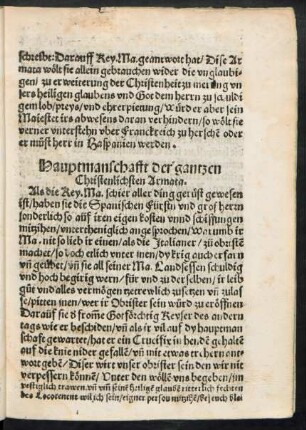 schreibt: Darauff Key. Ma. geantwort hat/ Dise Ar
mata wölt sie allein gebrauchen wider die vnglaubi-
gen/ zu erweiterung der Christenheit zu merung vn
sers heiligen glaubens vnd Got dem herrn zu schuldi
gem lob/ preys/ vnd ehrerpietung/ Würd er aber sein
Maiestet irs abwesens daran verhindern/ so wölt sie
verner vntersteh vber Franckreich zu hersche oder
er müst herr in Hispanien werden.
Hauptmanschafft der gantzen
Christenlichsten Armata.
Als die Key. Ma. schier aller ding gerüst gewesen
ist/ haben sie die Spanischen Fürstn vnd gros herrn
sonderlich so auff iren eigen kosten vnnd schiffungen
mitzihen/ vntertheniglich angesprochen/ warumb ir
Ma. nit so lieb ir einen/ als die Italianer/ zu obristē
machet/ so doch etlich vnter inen/ dy krig auch erfarn
vn geübet/ vn sie all seiner Ma. Landsessen schuldig
vnd hoch begirig wern/ für vnd zu der selben/ ir leib
gůt vnd alles vermögen getrewlich zusetzen vn zulaß
se/ pitten inen/ wer ir Obrister sein würd zu eröffnen
Darauff sie d frome Gotförchtig Keyser des andern
tags wie er bescheiden/ vn als ir vil auff dy hauptman
schafft gewartet/ hat er ein Crucifix in henden gehaltē
auff die knie nider gefalln/ vn mit etwas trehern ent-
wort gebē/ Diser wirt vnser obrister sein den wir nit
verpessern können/ Vnter dem wölln vns begeben/ in
vestiglich trawen vn vm seine heilige glaubē ritterlich fechten
des Locotenent wil ich sein/ eigner person mitzihē/ bey euch blei